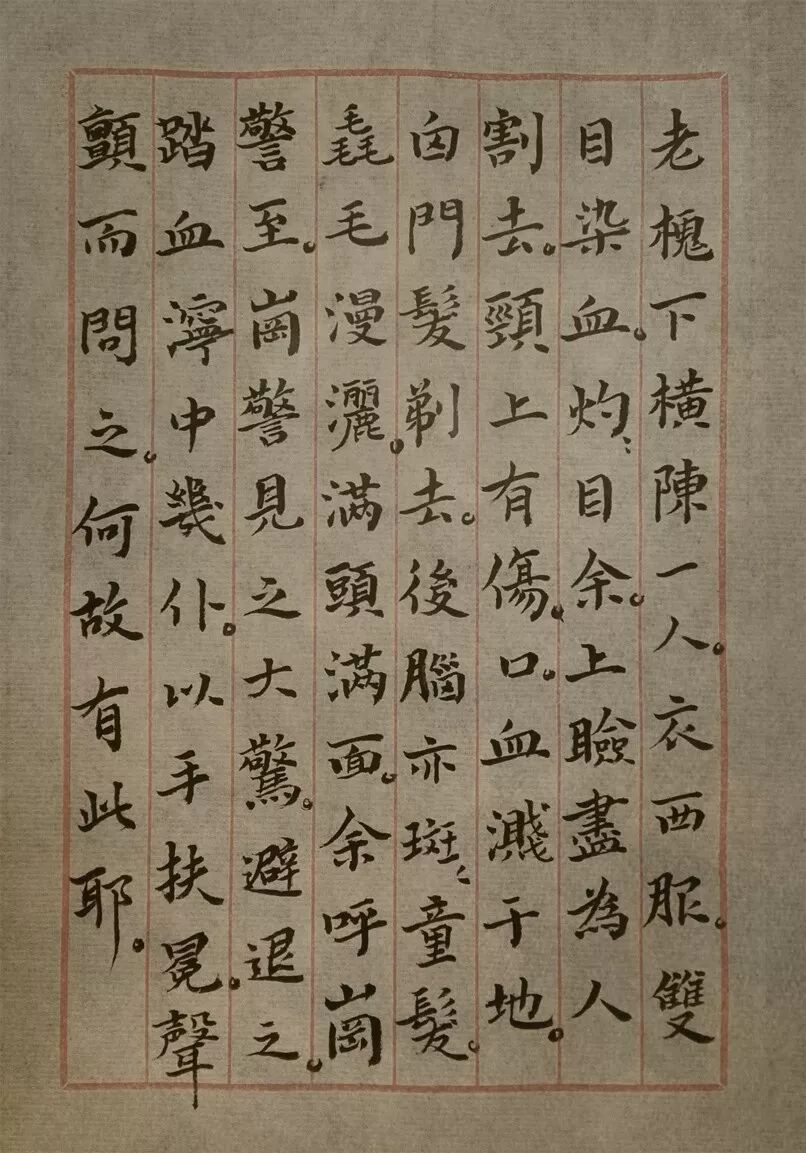 老槐下橫陳一人。衣西服。雙
目染血。灼灼目余。上瞼盡為人
割去。頸上有傷口。血濺于地。
囟門髮剃去。後腦亦斑斑童髮。
毳毛漫灑。滿頭滿面。余呼崗
警至。崗警見之大驚。避退之。
踏血濘中幾仆。以手扶冕。聲
顫而問之。何故有此耶。